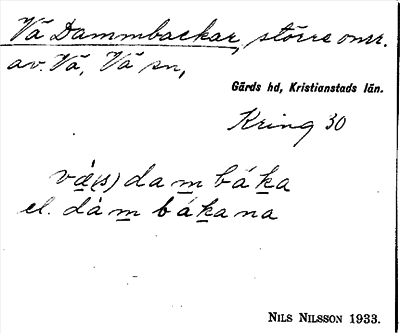 Vä Dammbackar, större omr.
av. Vä, Vä sn,
Gärds hd, Kristianstads län.
Kring 30
vä̀(s) dam báka
el. dàm bákana
NILS NILSSON 1933.